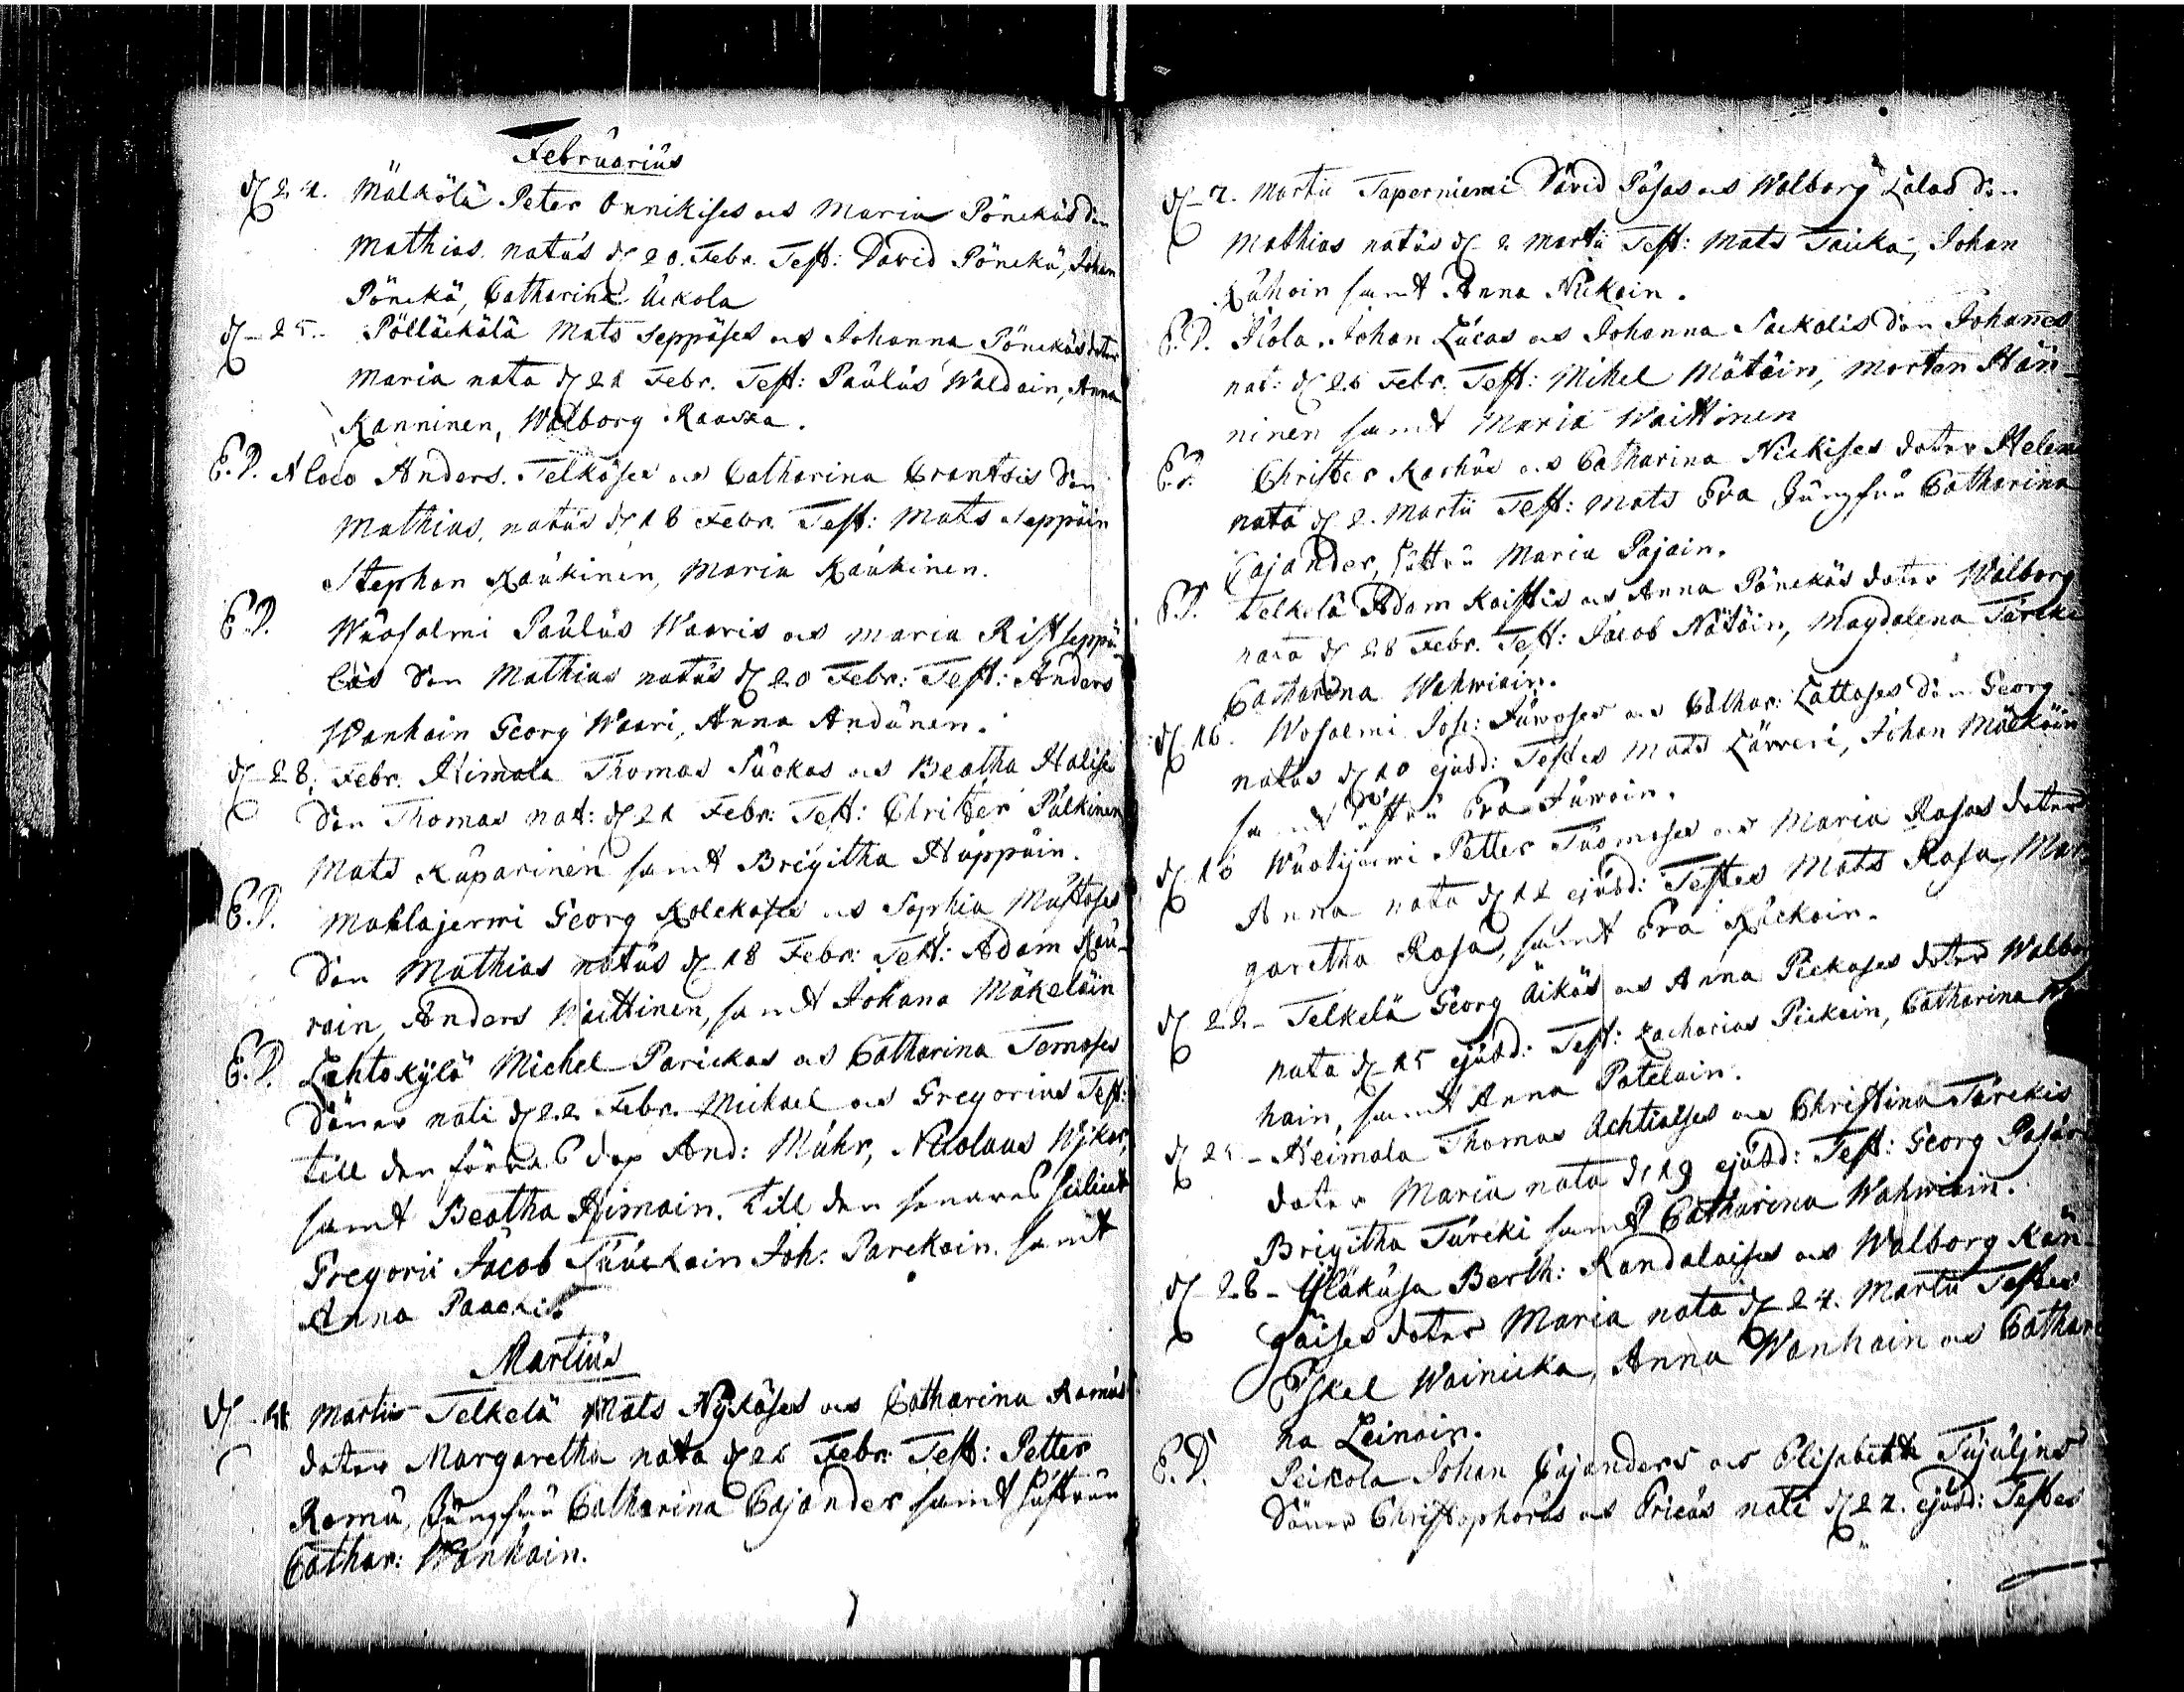 Februarius
d 24. Mälkölä Peter Onnikises och Maria Pönckäs Son
Mathias natus d 20. Febr. Test: David Pönckä, Johan
Pönckä, Catharina Uckola
d 25. Pölläckälä Mats Seppäses och Johanna Pönckäs doter
Maria nata d 21 Febr. Test: Paulus Waldain, Anna
Kanninen, Walborg Raaska.
E.D. Anders Telköses och Catharina Crantsis Son
Mathias, natus d 18 Febr. Test: Mats Seppäin
Stephan Kaukinen, Maria Kaukinen.
E.D. Wuosalmi Paulus Waaris och Maria Ristseppä-
läs Son Mathias natus d 20 Febr: Test: Anders
Wanhain Georg Waari, Anna Andönen.
d 28. Febr. Himala Thomas Suokas och Beatha Halises
Son Thomas nat: d 21 Febr: Test: Christer Pulkinen
Mats Kuparinen samt Brigitha Huppuin.
E.D. Mahlajermi Georg Kolckases och Sophia Mustoses
Son Mathias natus d 18 Febr: Test: Adam Kau-
rain, Anders Waittinen, samt Johana Mäkeläin
E.D. Lehtokylä Michel Parickas och Catharina Temoses
Söner nati d 22 Febr. Mickael och Gregorius Test:
till den förra Cap And: Muhr, Nicolaus Wikar,
samt Beatha Himain. till den senares scilicet
Gregorii Jacob Suuckain Joh: Parckain samt
Anna Paacki
Martius
d Martii Telkelä Mats Nykäses och Catharina Ramus
doter Margaretha nata d 26 Febr: Test: Petter
Ramu, Jungfru Catharina Cajander samt hustrun
Cathar: Wanhain.
d 7. Martii Taperniemi David Pusas och Walborg Son
Mathias natus d 2 Martii Test: Mats Tauka, Johan
Kuhain samt Anna Nickain.
E.D. Ilola Johan Lucas och Johanna Suckalis Son Johannes
nat: d 26 Febr. Test: Mikel Mätäin, Morten Hän-
ninen samt Maria Waittinen
E.D. Christer Karhus och Catharina Nickises doter Helena
nata d 2. Martii Test: Mats Jungfru Catharina
Cajander, hustru Maria Pajain.
E.D. Telkelä Adam Kaistis och Anna Pönckäs doter Walborg
nata d 28 Febr. Test: Jacob Nätäin, Magdalena Turcki
Catharina Wahwiain.
d 16. Wosalmi Jos: Juwoses och Cathar: Lattoses Son Georg
natus d 10 ejusd: Testes Mats Lawren, Johan Mäckäin
samt hustru Eva Juwoin.
d 18 Wuotijerwi Petter Tuomoses och Maria Rasas doter
Anna nata d 12 ejusd: Testes Mats Rasa, Mar-
garetha Rasa, samt Eva Kuckain.
d 22 Telkelä Georg Äikäs och Anna Pickases doter Walborg
nata d 15 ejusd: Test: Zacharias Pickain, Catharina
hain, samt Anna Potelain.
d 25 Heimala Thomas Achtiaises och Christina Turckis
doter Maria nata d 19 ejusd: Test: Georg
Brigitha Turcki samt Catharina Wahwiain.
d 28 Yläkusa Berth: Randalaises och Walborg Kän-
gäises doter Maria nata d 24. Martii Testes
Eskel Wainicka, Anna Wanhain och Cathari
na Leinoin.
E.D. Peikola Johan Cajanders och Elisabeth
Söner Christophorus och Ericus nati d 27. ejusd: Testes